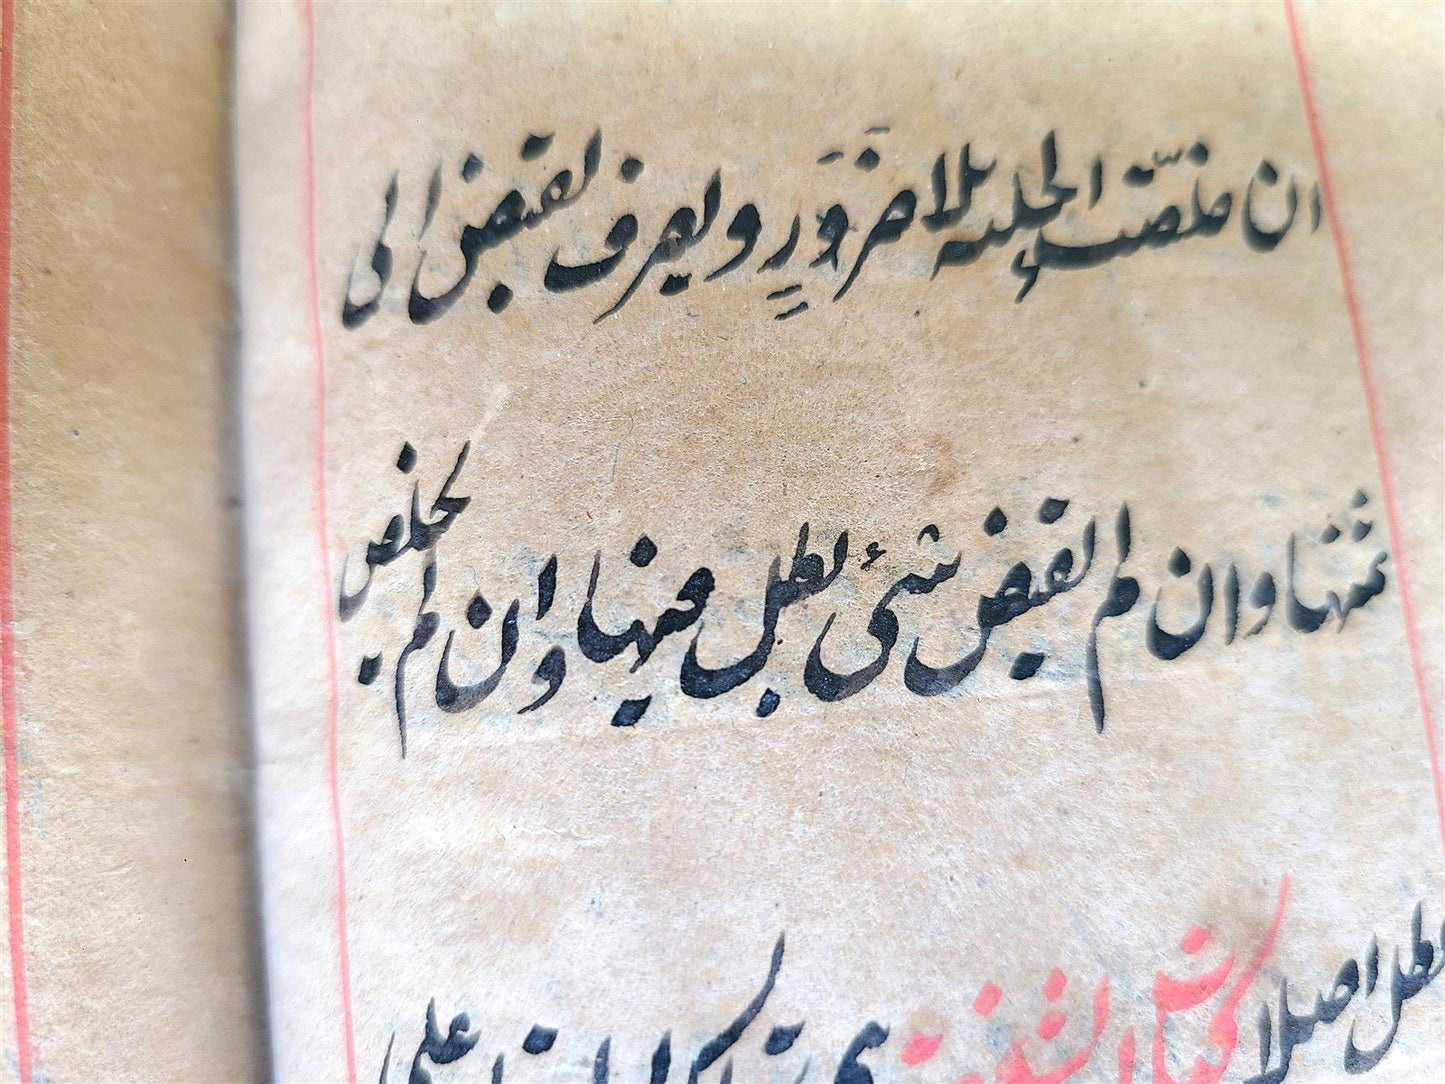 ان خلصت الحلية بلا ضَرَورٍ ويعرف لقبض الى
ثمنها وان لم يقبض شئ بطل فيها وان لم يخلص
بطل اصلا كتاب الشفعة هى على